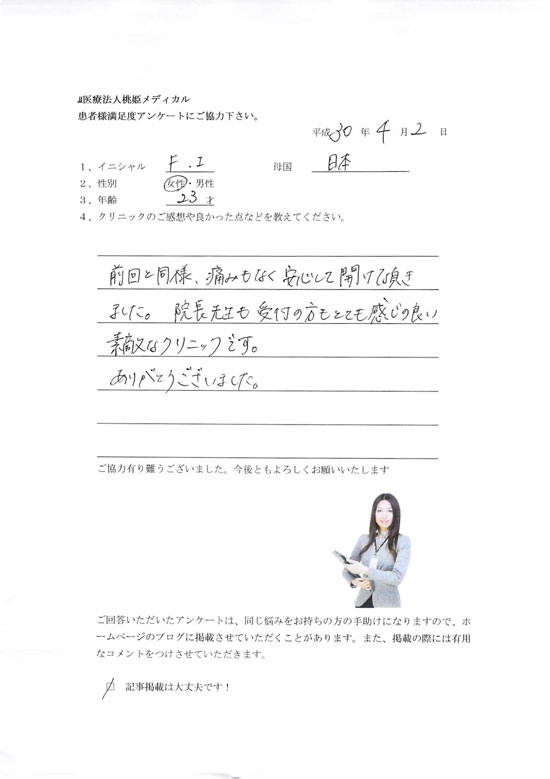 医療法人桃姫メディカル
患者様満足度アンケートにご協力下さい。
平成30年4月2日
1、イニシャル F.I 母国 日本
2、性別 女性・男性
3、年齢 23才
4、クリニックのご感想や良かった点などを教えてください。
前回と同様、痛みもなく安心して開けて頂き
ました。 院長先生も受付の方もとても感じの良い
素敵なクリニックです。
ありがとうございました。
ご協力有り難うございました。今後ともよろしくお願いいたします
ご回答いただいたアンケートは、同じ悩みをお持ちの方の手助けになりますので、ホ
ームページのブログに掲載させていただくことがあります。また、掲載の際には有用
なコメントをつけさせていただきます。
□ 記事掲載は大丈夫です！